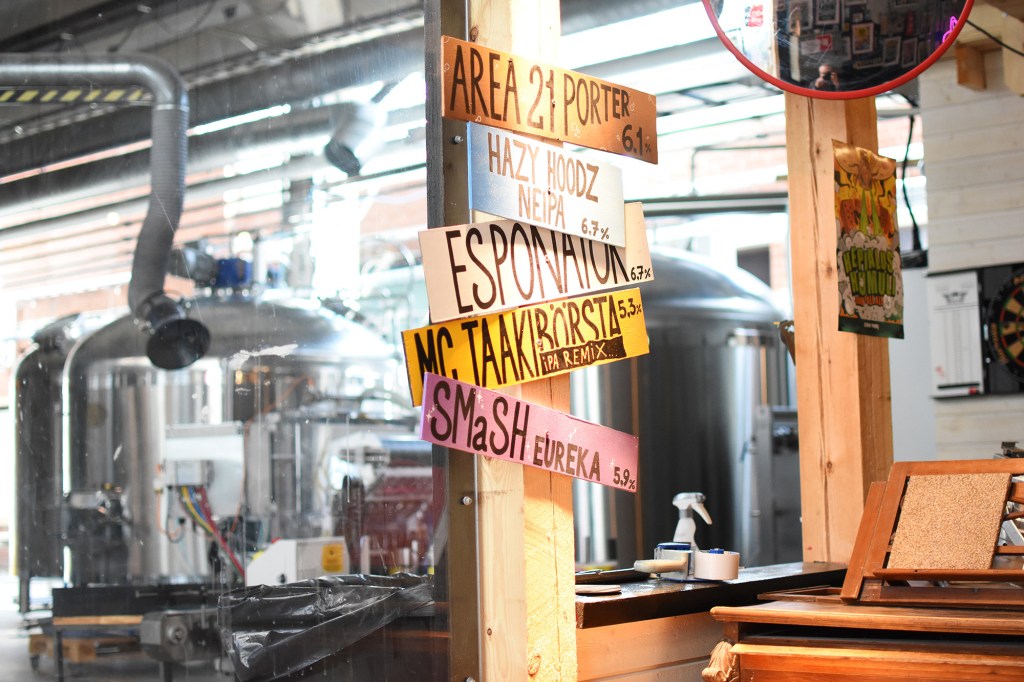 AREA 21 PORTER
6.1%
HAZY HOODZ
NEIPA
6.7%
ESPONATOR
6.7%
MC TAAKIBÖRSTA
5.3%
IPA REMIX...
SMaSH EUREKA
5.9%